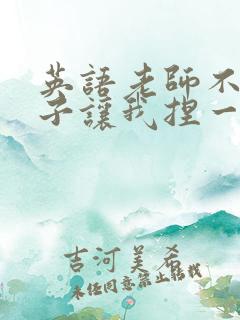 英語老師不
子讓我捏一
吉河美希
未經同意禁止轉載